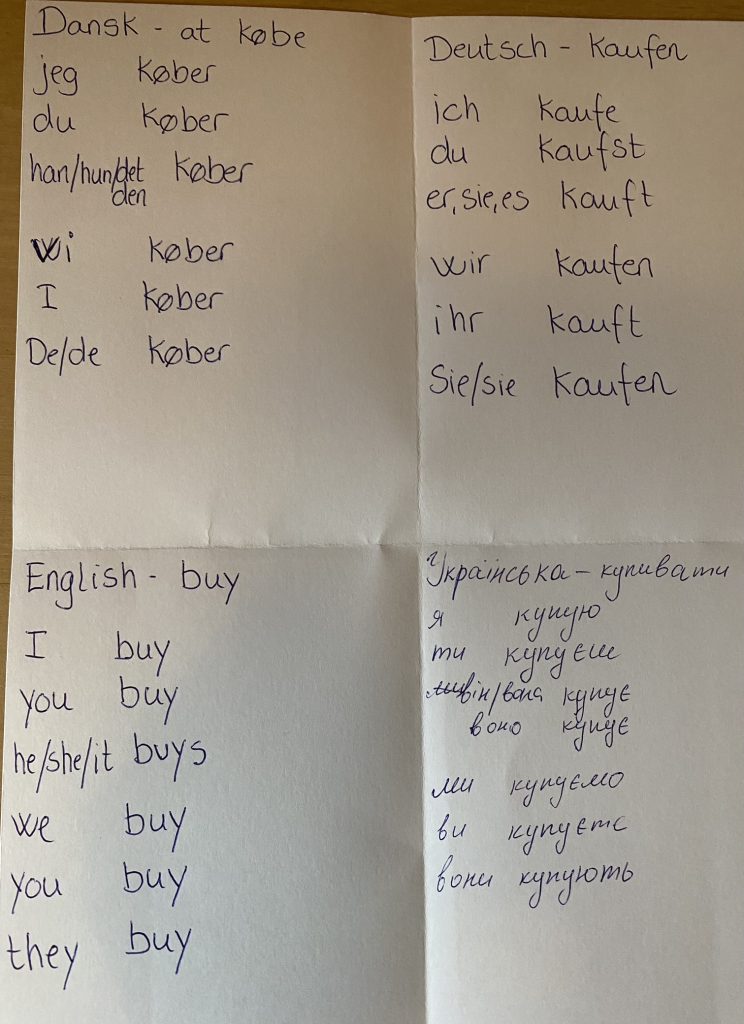 Dansk - at købe
jeg køber
du køber
han/hun/det køber
den
wi køber
I køber
De/de køber
Deutsch - kaufen
ich kaufe
du kaufst
er, sie, es kauft
wir kaufen
ihr kauft
Sie/sie kaufen
English - buy
I buy
you buy
he/she/it buys
we buy
you buy
they buy
Українська - купивати
я купую
ти купуєш
він/вона купує
воно купує
ми купуємо
ви купуєте
вони купують